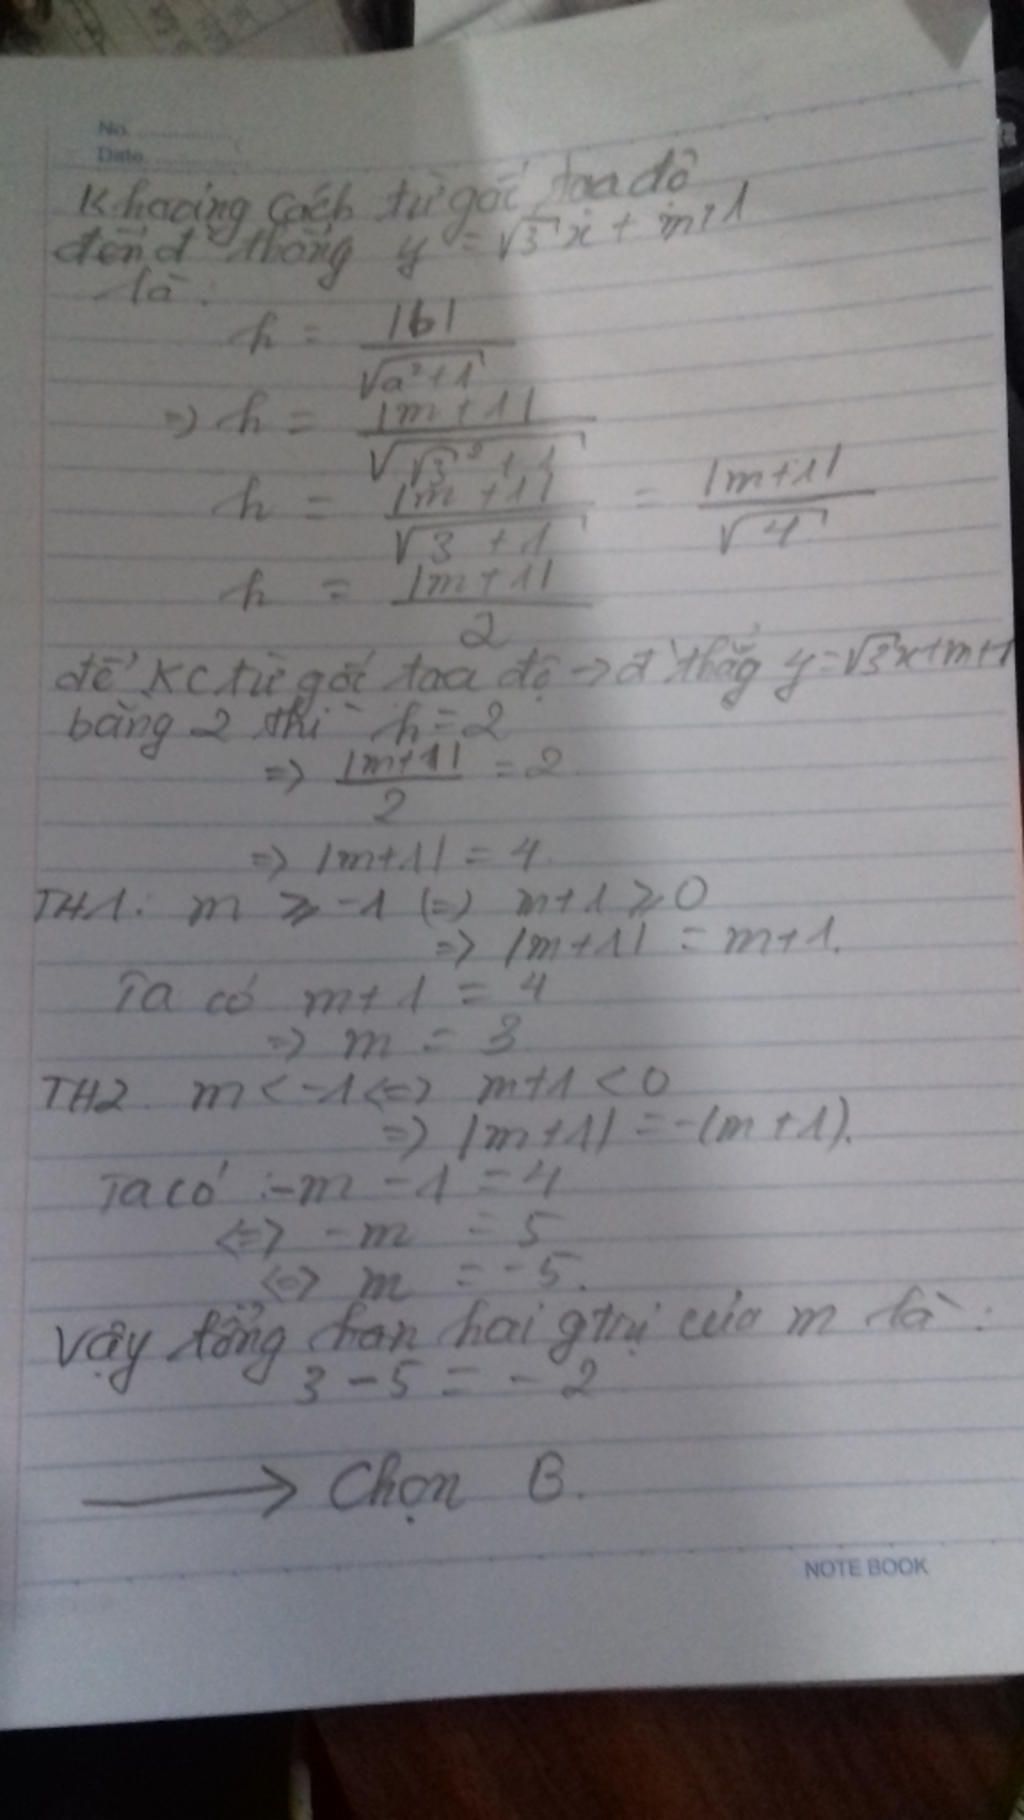 No. ............
Date. ............
Khoảng cách từ gốc toạ độ
đến đ thẳng y = √3 x + m+1
là:
h = |b| / √a²+1
=> h = |m+1| / √√3² + 1
h = |m+1| / √3+1 = |m+1| / √4
h = |m+1| / 2
để KC từ gốc toạ độ → đ thẳg y=√3x+m+1
bằng 2 thì h=2
=> |m+1| / 2 = 2
=> |m+1| = 4
TH1: m ⩾ -1 (=) m+1 ⩾ 0
=> |m+1| = m+1.
Ta có m+1 = 4
=> m = 3
TH2 m < -1 <=> m+1 < 0
=> |m+1| = -(m+1).
Ta có : -m - 1 = 4
<=> -m = 5
<=> m = -5.
Vậy tổng hai gtrị của m là:
3 - 5 = - 2
→ Chọn B.
NOTE BOOK